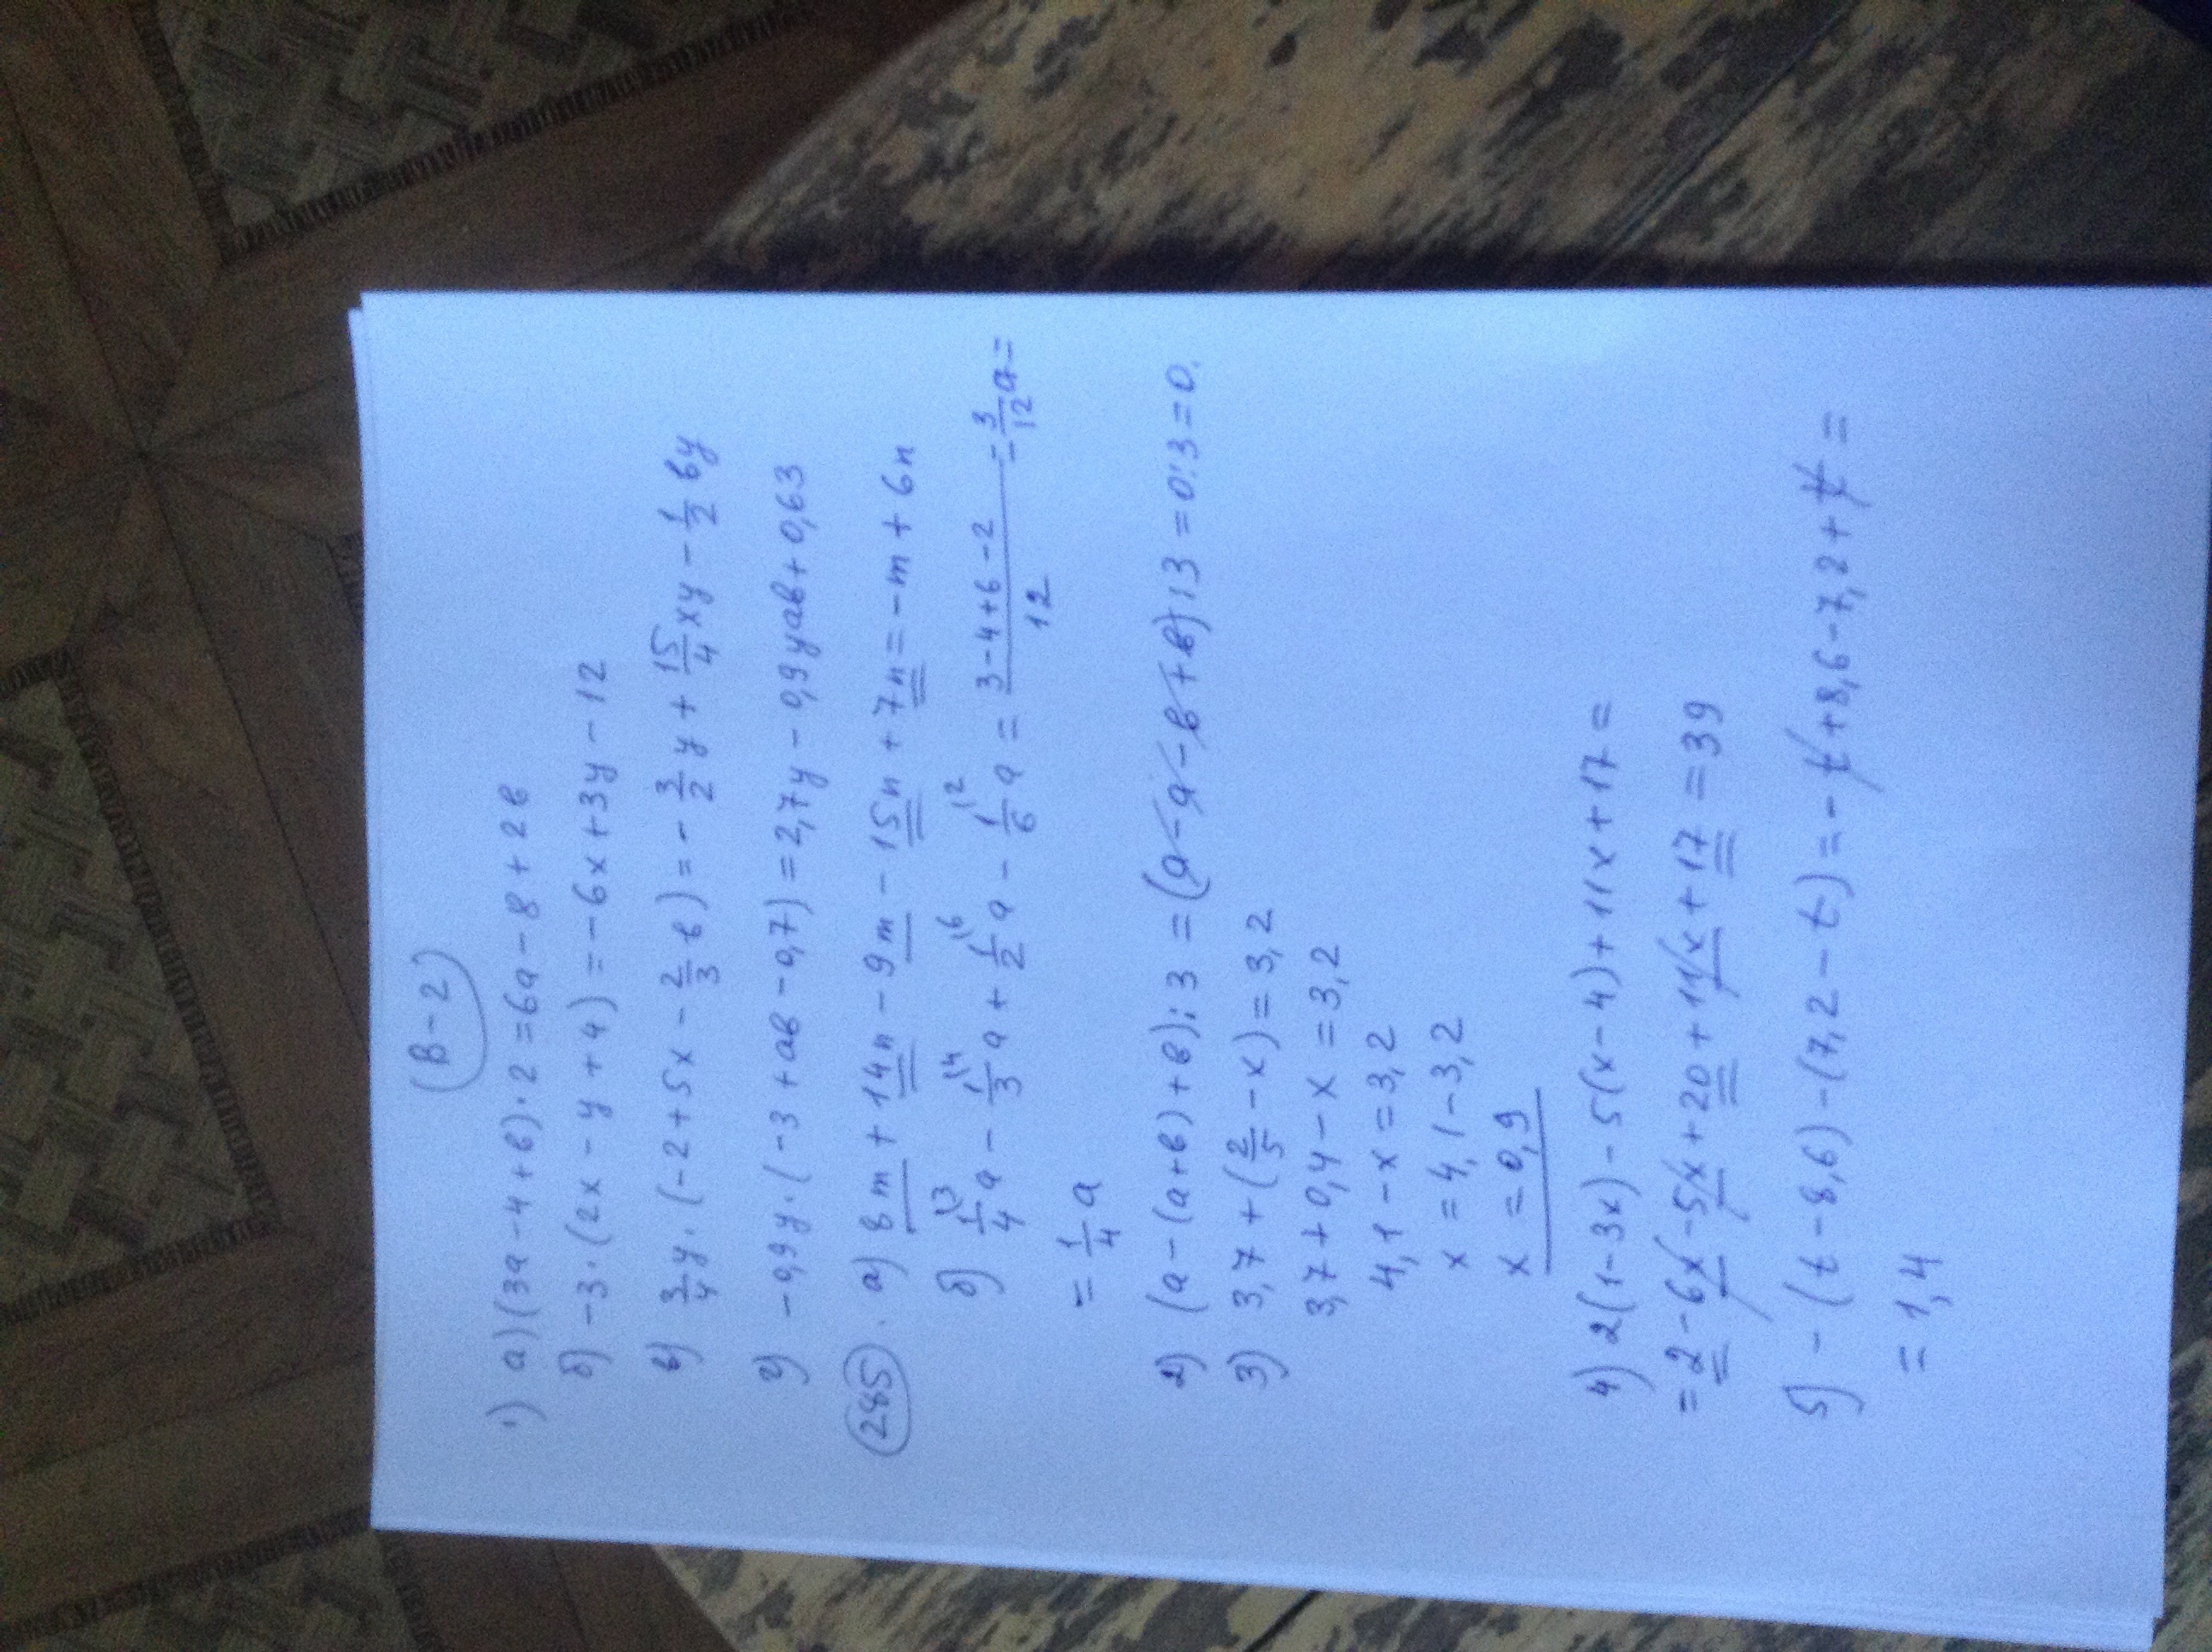 В-2
1) а) (3a - 4 + b) · 2 = 6a - 8 + 2b
б) -3 · (2x - y + 4) = -6x + 3y - 12
в) 3/4 y · (-2 + 5x - 2/3 b) = - 3/2 y + 15/4 xy - 1/2 by
г) -0,9y · (-3 + ab - 0,7) = 2,7y - 0,9yab + 0,63
285. а) 8m + 14n - 9m - 15n + 7n = -m + 6n
б) 1/4 |3 a - 1/3 |4 a + 1/2 |6 a - 1/6 |2 a = 3-4+6-2/12 = 3/12 a =
= 1/4 a
2) (a - (a+b) + b) : 3 = (a - a - b + b) : 3 = 0 : 3 = 0.
3) 3,7 + (2/5 - x) = 3,2
3,7 + 0,4 - x = 3,2
4,1 - x = 3,2
x = 4,1 - 3,2
x = 0,9
4) 2(1-3x) - 5(x-4) + 11x + 17 =
= 2 - 6x - 5x + 20 + 11x + 17 = 39
5) - (t - 8,6) - (7,2 - t) = - t + 8,6 - 7,2 + t =
= 1,4